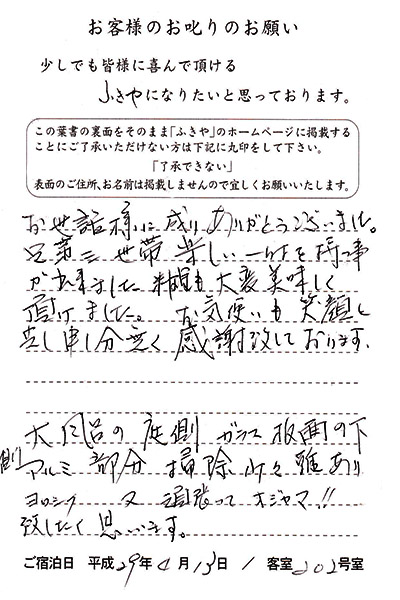 お客様のお叱りのお願い
少しでも皆様に喜んで頂ける
ふきやになりたいと思っております。
この葉書の裏面をそのまま「ふきや」のホームページに掲載する
ことにご了承いただけない方は下記に丸印をして下さい。
「了承できない」
表面のご住所、お名前は掲載しませんので宜しくお願いいたします。
お世話様に成りありがとうございました。
兄弟三世帯楽しい一時を持つ事
が出来ました 料理も大変美味しく
頂けました。お気使いも笑顔も
申し分無く感謝致しております。
大風呂の庭側 ガラス板画の下
側 アルミ部分 掃除少々難あり
ヨロシク 又 頑張って オジャマ!!
致したく思います。
ご宿泊日 平成29年4月13日 / 客室202号室